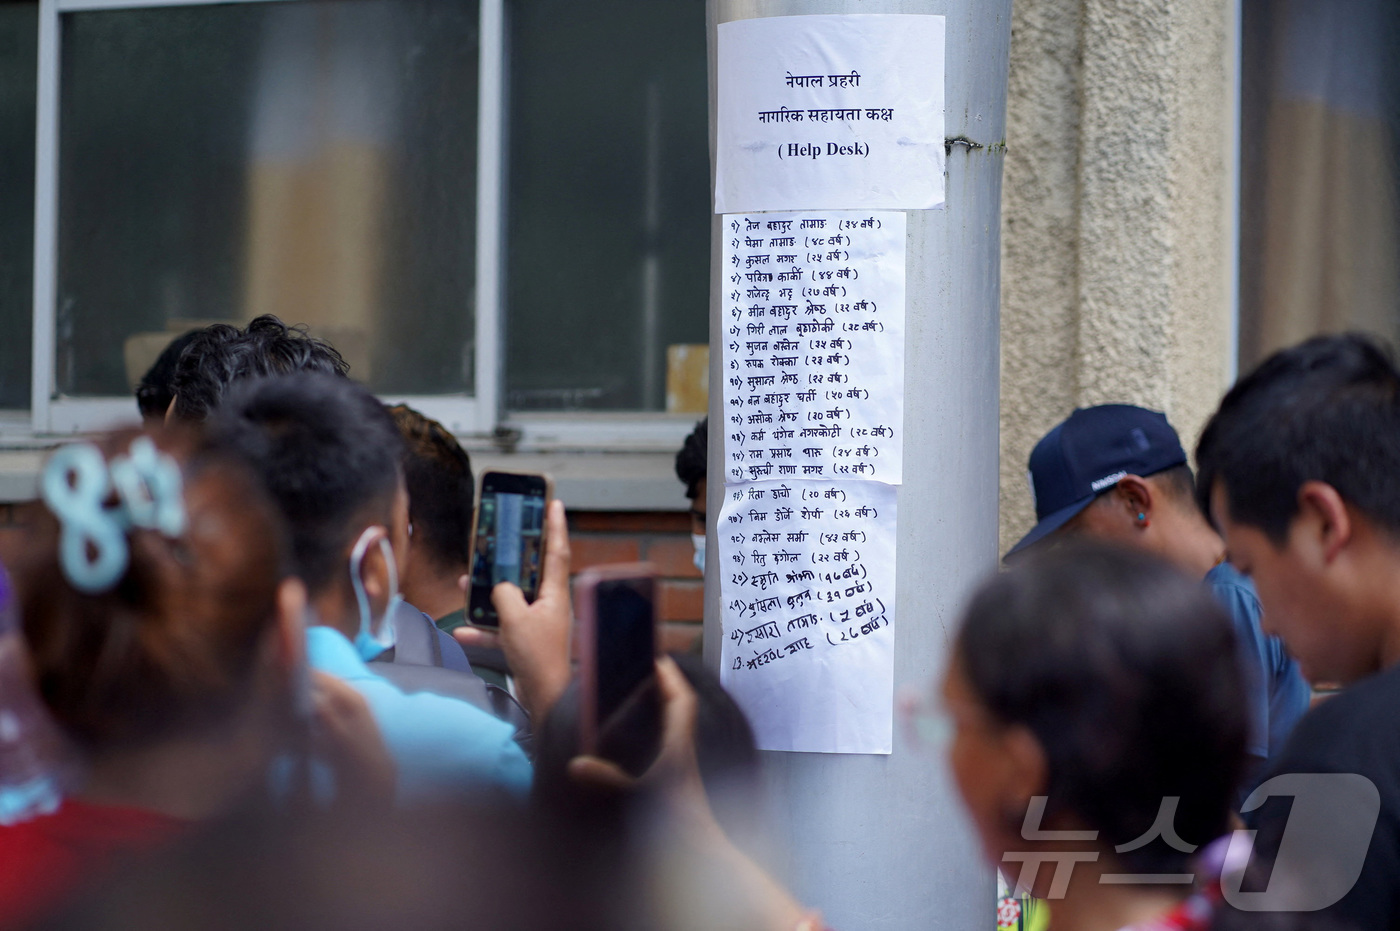 नेपाल प्रहरी
नागरिक सहायता कक्ष
( Help Desk)
१) तेज बहादुर तामाङ (३४ वर्ष)
२) पेमा तामाङ (४८ वर्ष)
३) कुसल मगर (२५ वर्ष)
४) पवित्रा कार्की (४४ वर्ष)
५) राजेन्द्र भट्ट (२७ वर्ष)
६) मीन बहादुर श्रेष्ठ (३२ वर्ष)
७) गिरी लाल बुढाठोकी (३८ वर्ष)
८) सुजन बस्नेत (३५ वर्ष)
९) रुपक रोक्का (२३ वर्ष)
१०) सुसान्त श्रेष्ठ (२२ वर्ष)
११) बल बहादुर घर्ती (५० वर्ष)
१२) असोक श्रेष्ठ (३० वर्ष)
१३) कर्म नगरकोटी (२८ वर्ष)
१४) राम प्रसाद थारू (३४ वर्ष)
१५) सुरुची राणा मगर (२२ वर्ष)
१६) रिता (२० वर्ष)
१७) निम दोर्जे शेर्पा (२६ वर्ष)
१८) शर्मा (४३ वर्ष)
१९) रितु डंगोल (३२ वर्ष)
२०) स्मृति (१७ वर्ष)
२१) (३१ वर्ष)
तामाङ (२ वर्ष)
शाह (२६ वर्ष)
뉴스1